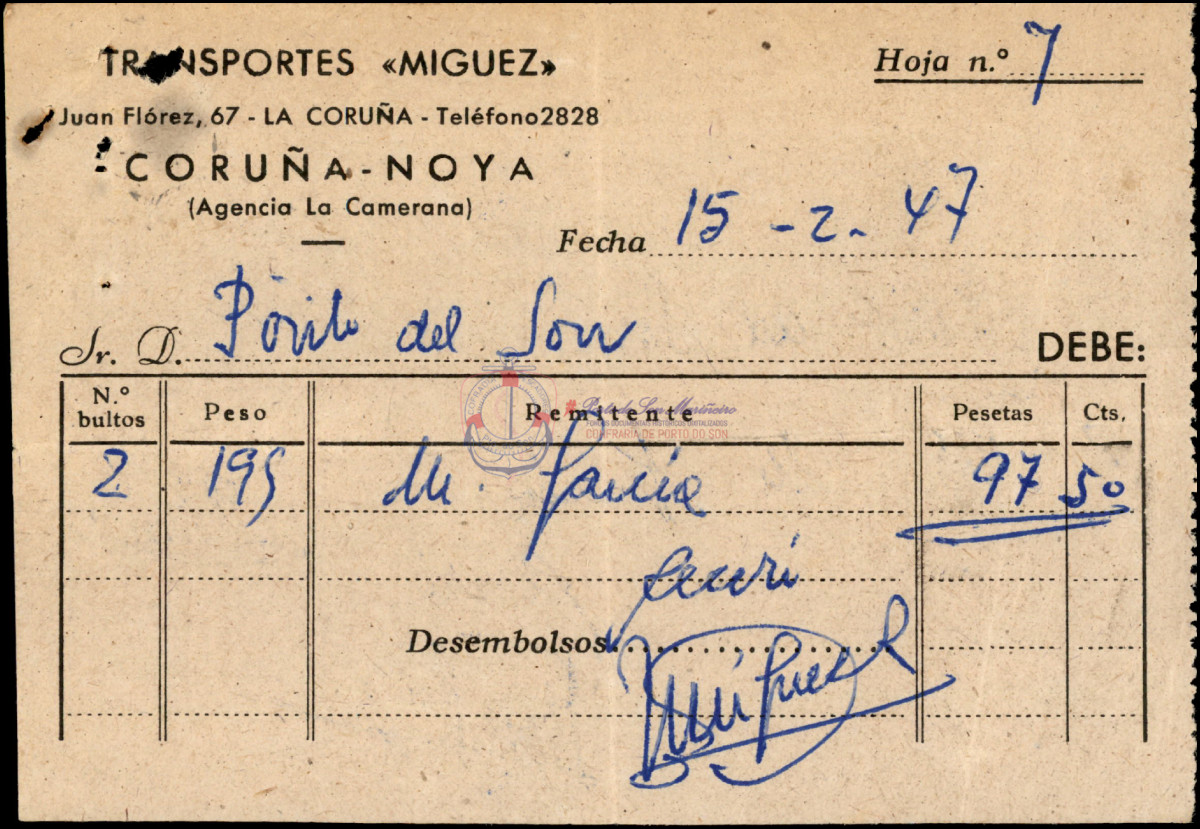 TRANSPORTES «MIGUEZ»
Hoja n.° 7
Juan Flórez, 67 - LA CORUÑA - Teléfono 2828
CORUÑA - NOYA
(Agencia La Camerana)
Fecha 15 - 2. 47
Sr. D. Porito del Son
DEBE:
N.° bultos Peso Remitente Pesetas Cts.
Porto do Son Mariñeiro
FONDOS DOCUMENTAIS HISTÓRICOS DIXITALIZADOS
CONFRARÍA DE PORTO DO SON
2 195 M. García 97 50
Desembolsos
Miguez